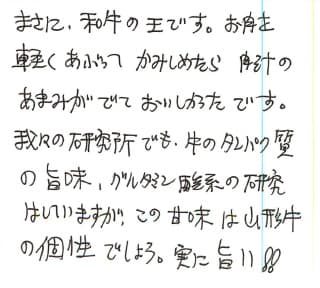 まさに、和牛の王です。お肉を
軽くあぶって かみしめたら 肉汁の
あまみがでて おいしかった です。
我々の研究所でも、牛のタンパク質
の旨味、グルタミン酸系の研究
はしていますが、この甘味は山形牛
の個性でしょう。実に旨い!!